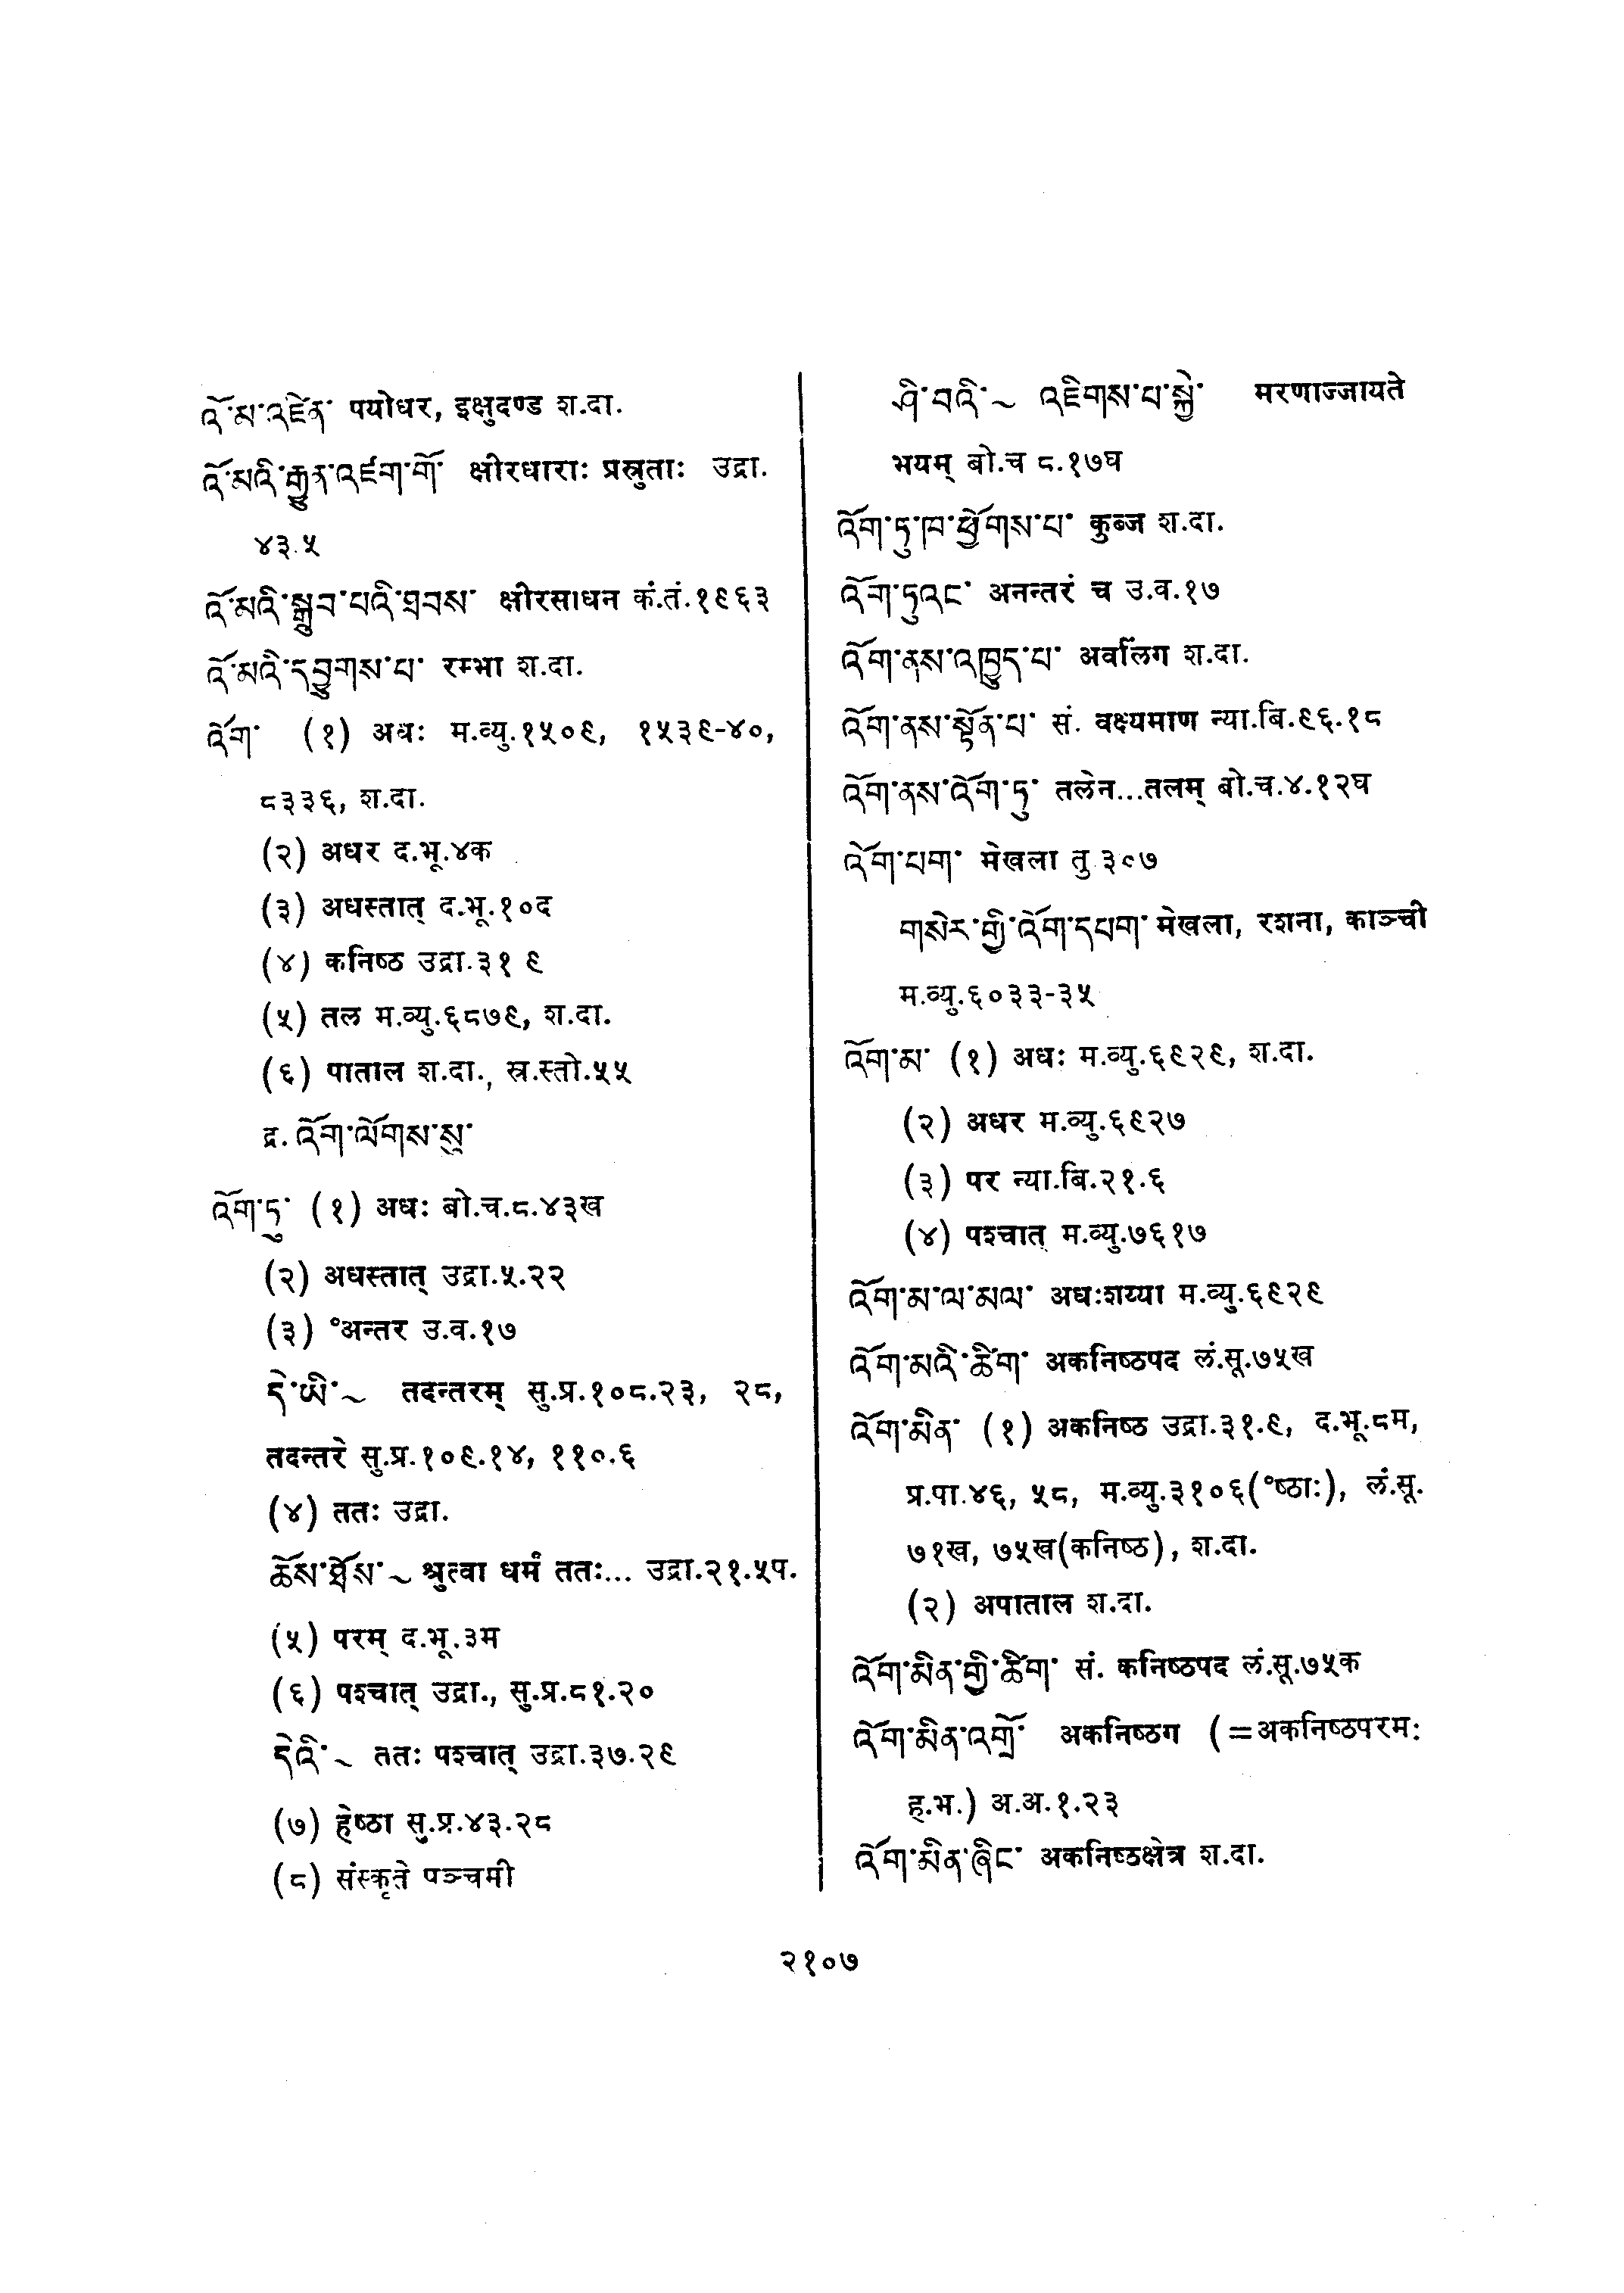 འོ་མ་འཛིན་ पयोधर, इक्षुदण्ड श.दा.
འོ་མའི་རྒྱུན་འཛག་གོ་ क्षीरधाराः प्रस्रुताः उद्रा.
४३.५
འོ་མའི་སྒྲུབ་པའི་ཐབས་ क्षीरसाधन कं.तं.१९६३
འོ་མའི་དབྱུགས་པ་ रम्भा श.दा.
འོག་ (१) अधः म.व्यु.१५०९, १५३९-४०,
८३३६, श.दा.
(२) अधर द.भू.४क
(३) अधस्तात् द.भू.१०द
(४) कनिष्ठ उद्रा.३१ ९
(५) तल म.व्यु.६८७९, श.दा.
(६) पाताल श.दा., स्र.स्तो.५५
द्र. འོག་ལོགས་སུ་
འོག་ཏུ་ (१) अधः बो.च.८.४३ख
(२) अधस्तात् उद्रा.५.२२
(३) °अन्तर उ.व.१७
དེ་ཡི་~ तदन्तरम् सु.प्र.१०८.२३, २८,
तदन्तरे सु.प्र.१०९.१४, ११०.६
(४) ततः उद्रा.
ཆོས་ཐོས་~ श्रुत्वा धर्मं ततः... उद्रा.२१.५प.
(५) परम् द.भू.३म
(६) पश्चात् उद्रा., सु.प्र.८१.२०
དེའི་~ ततः पश्चात् उद्रा.३७.२९
(७) हेष्ठा सु.प्र.४३.२८
(८) संस्कृते पञ्चमी
ཤི་བའི་~ འཇིགས་པ་སྐྱེ་ मरणाज्जायते
भयम् बो.च ८.१७घ
འོག་ཏུ་ཁ་ཕྱོགས་པ་ कुब्ज श.दा.
འོག་ཏུའང་ अनन्तरं च उ.व.१७
འོག་ནས་འཁྱུད་པ་ अवलिंग श.दा.
འོག་ནས་སྟོན་པ་ सं. वक्ष्यमाण न्या.बि.९६.१८
འོག་ནས་འོག་ཏུ་ तलेन...तलम् बो.च.४.१२घ
འོག་པག་ मेखला तु ३०७
གསེར་གྱི་འོག་དཔག་ मेखला, रशना, काञ्ची
म.व्यु.६०३३-३५
འོག་མ་ (१) अधः म.व्यु.६९२९, श.दा.
(२) अधर म.व्यु.६९२७
(३) पर न्या.बि.२१.६
(४) पश्चात् म.व्यु.७६१७
འོག་མ་ལ་མལ་ अधःशय्या म.व्यु.६९२९
འོག་མའི་ཚིག་ अकनिष्ठपद लं.सू.७५ख
འོག་མིན་ (१) अकनिष्ठ उद्रा.३१.९, द.भू.८म,
प्र.पा.४६, ५८, म.व्यु.३१०६(°ष्ठाः), लं.सू.
७१ख, ७५ख(कनिष्ठ), श.दा.
(२) अपाताल श.दा.
འོག་མིན་གྱི་ཚིག་ सं. कनिष्ठपद लं.सू.७५क
འོག་མིན་འགྲོ་ अकनिष्ठग (=अकनिष्ठपरमः
ह.भ.) अ.अ.१.२३
འོག་མིན་ཞིང་ अकनिष्ठक्षेत्र श.दा.
२१०७